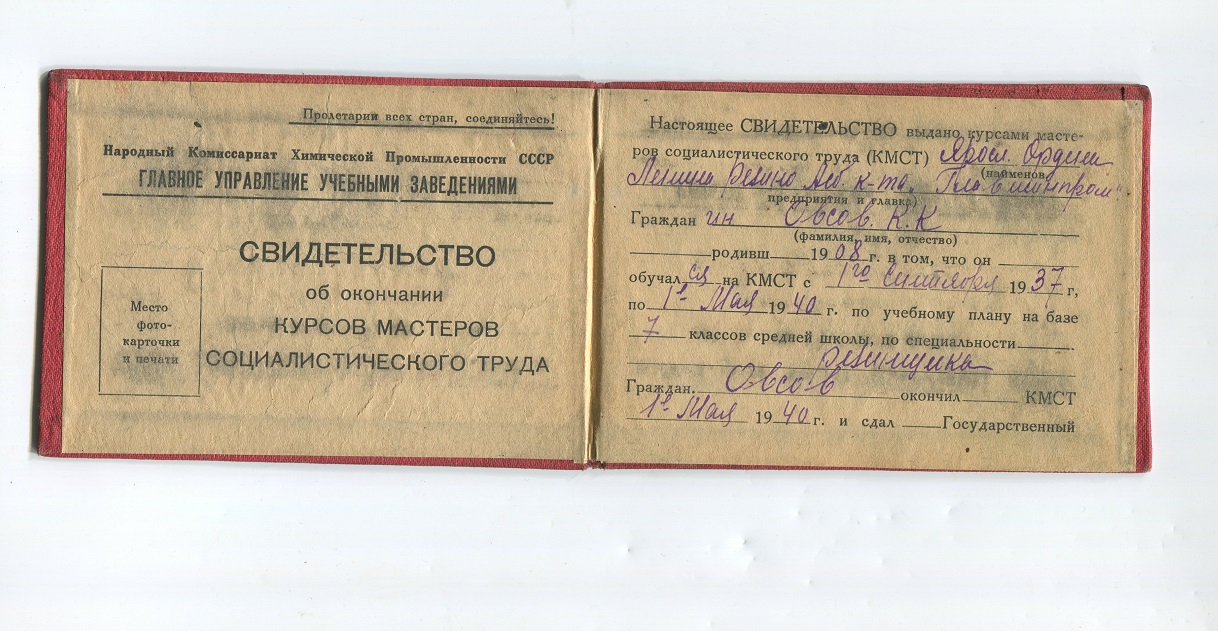 Пролетарии всех стран, соединяйтесь!
Народный Комиссариат Химической Промышленности СССР
ГЛАВНОЕ УПРАВЛЕНИЕ УЧЕБНЫМИ ЗАВЕДЕНИЯМИ
СВИДЕТЕЛЬСТВО
об окончании
КУРСОВ МАСТЕРОВ
СОЦИАЛИСТИЧЕСКОГО ТРУДА
Место
фото-
карточки
и печати
Настоящее СВИДЕТЕЛЬСТВО выдано курсами масте-
ров социалистического труда (КМСТ) Яросл. Ордена
(наименов.
Ленина Резино Асб. к-та, "Главшинпром"
предприятия и главка)
Граждан ин Овсов. К. К
(фамилия, имя, отчество)
родивш 1908 г. в том, что он
обучал ся на КМСТ с 1го Сентября 1937 г,
по 1е Мая 1940 г. по учебному плану на базе
7 классов средней школы, по специальности
резинщика
Граждан. Овсов окончил КМСТ
1е Мая 1940 г. и сдал Государственный